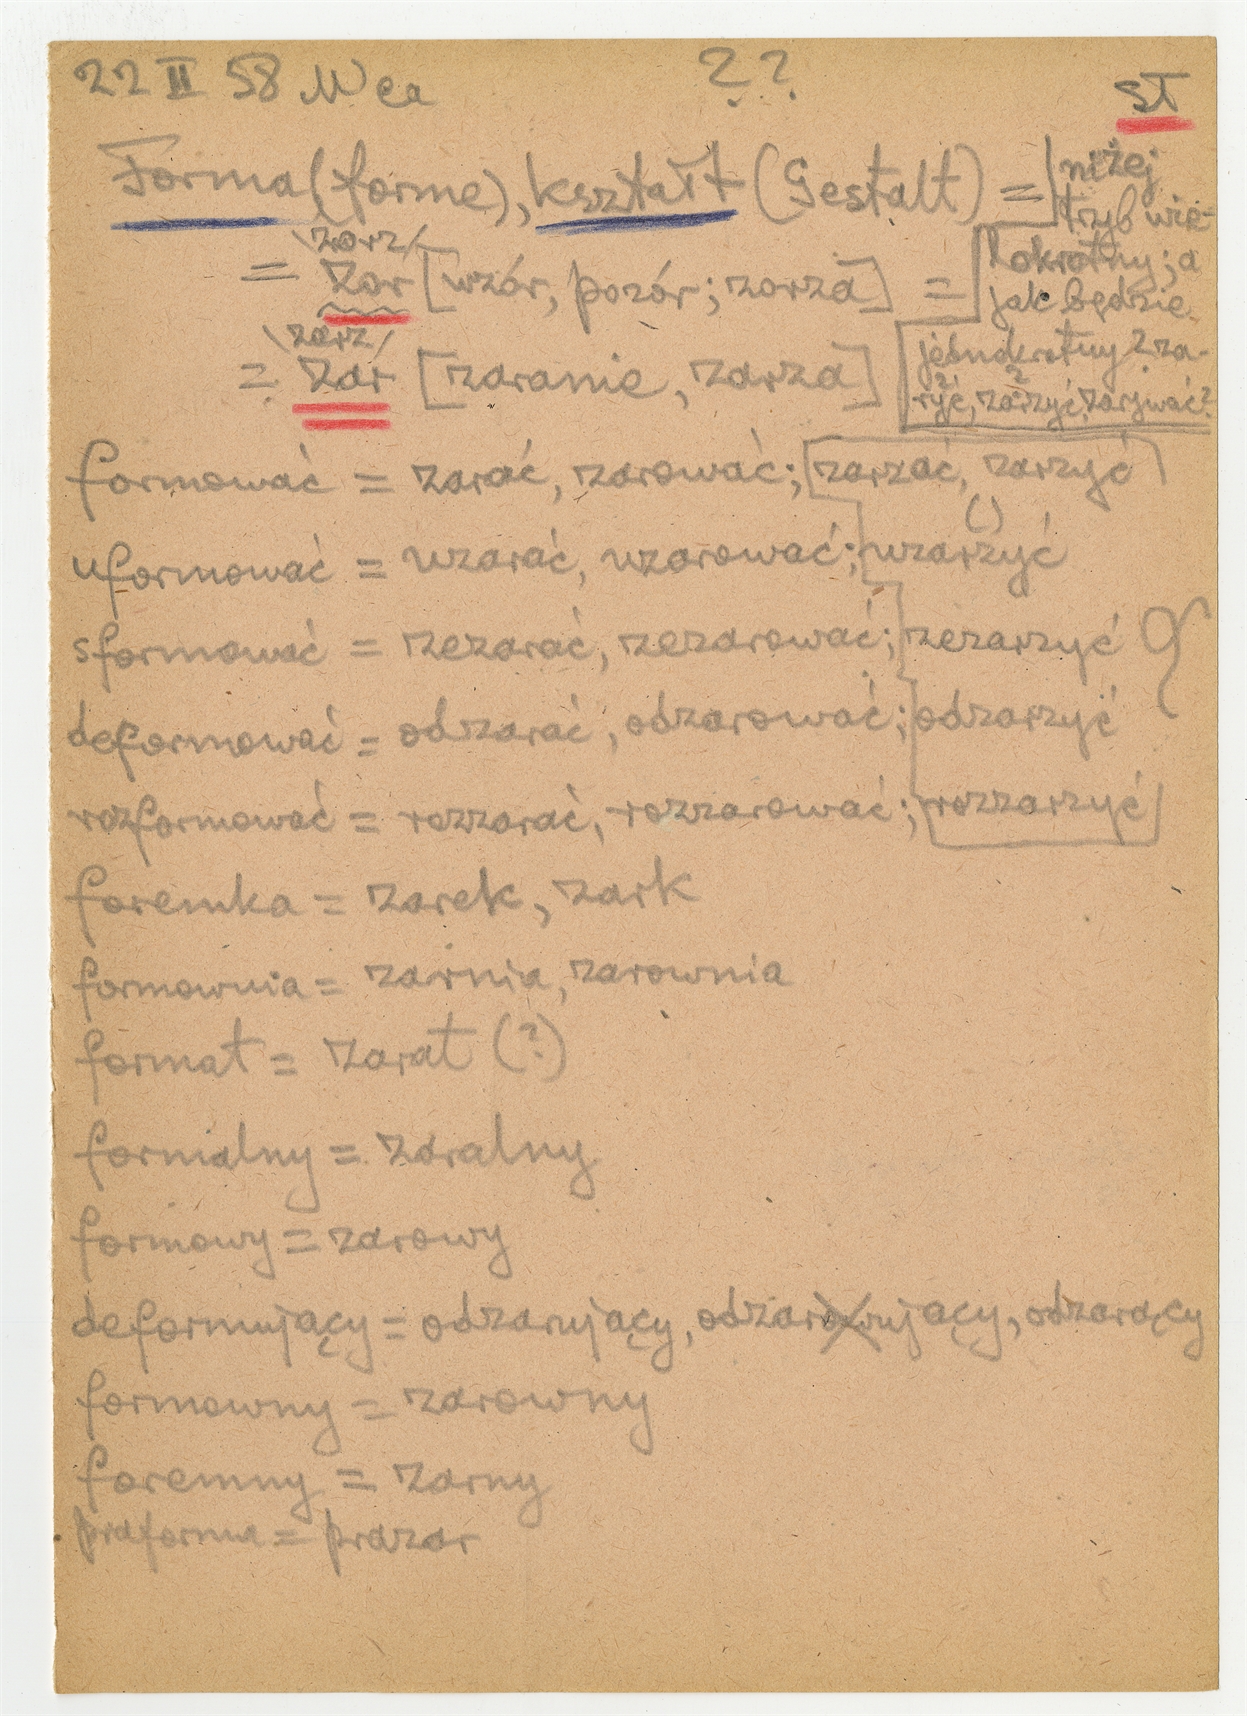 22 II 58 Wca ?? st
Forma (forme), kształt (Gestalt) =
\zorz/
= zor [wzór, pozór; zorza] =
\zarz/
= zar [zaranie, zarza]
niżej
tryb wie-
lokrotny; a
jak będzie
jednokrotny? za-
ryć, zarzyć, zarywać?
formować = zarać, zarować; [zarzać, zarzyć]
uformować = uzarać, uzarować; uzarzyć
sformować = zezarać, zezarować; zezarzyć
deformować = odzarać, odzarować; odzarzyć
rozformować = rozzarać, rozzarować; rozzarzyć
foremka = zarek, zark
formownia = zarnia, zarownia
format = zarat (?)
formalny = zaralny
formowy = zarowy
deformujący = odzarujący, odzarowujący, odzarący
formowny = zarowny
foremny = zarny
praforma = prazar